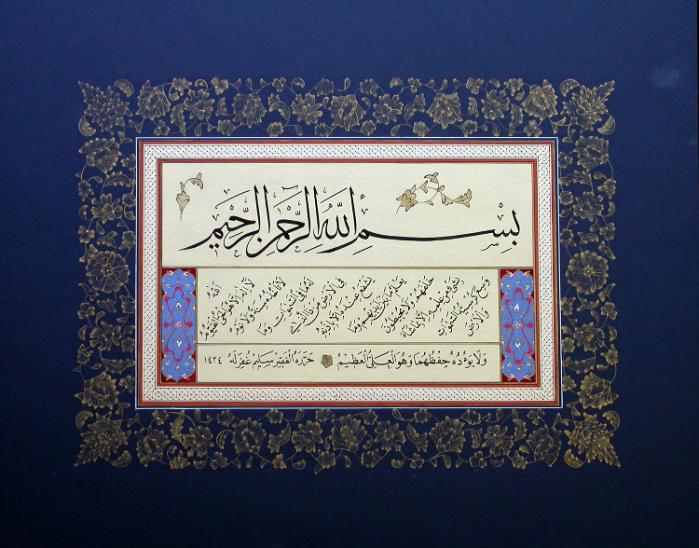 بِسْمِ اللهِ الرَّحْمٰنِ الرَّحِيمِ
اَللهُ
لَا إِلٰهَ إِلَّا هُوَ الْحَيُّ الْقَيُّومُ
لَا تَأْخُذُهُ سِنَةٌ وَلَا نَوْمٌ
لَهُ مَا فِي السَّمٰوَاتِ وَمَا
فِي الْأَرْضِ مَنْ ذَا الَّذِي
يَشْفَعُ عِنْدَهُ إِلَّا بِإِذْنِهِ
يَعْلَمُ مَا بَيْنَ أَيْدِيهِمْ وَمَا
خَلْفَهُمْ وَلَا يُحِيطُونَ
بِشَيْءٍ مِنْ عِلْمِهِ إِلَّا بِمَا شَاءَ
وَسِعَ كُرْسِيُّهُ السَّمٰوَاتِ
وَالْأَرْضَ
وَلَا يَؤُدُهُ حِفْظُهُمَا وَهُوَ الْعَلِيُّ الْعَظِيمُ حَرَّرَهُ الْفَقِيرُ سَلِيم غُفِرَ لَهُ ١٤٢٤